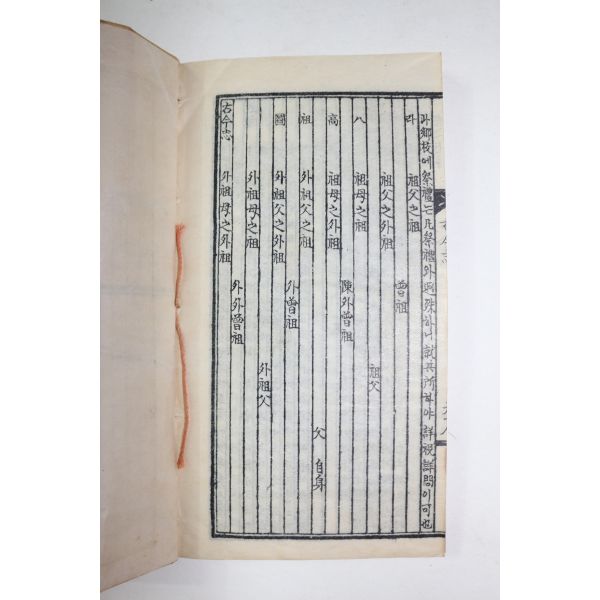 나鄕校에祭禮는凡祭禮와逈殊하니就其所하야詳視詳問이可也
라 祖父之祖
曾祖
祖父之外祖
祖父
八 祖母之祖
陳外曾祖
高 祖母之外祖
父 自身
祖 外祖父之祖
外曾祖
圖 外祖父之外祖
外祖父
外祖母之祖
外外曾祖
外祖母之外祖
古今忠